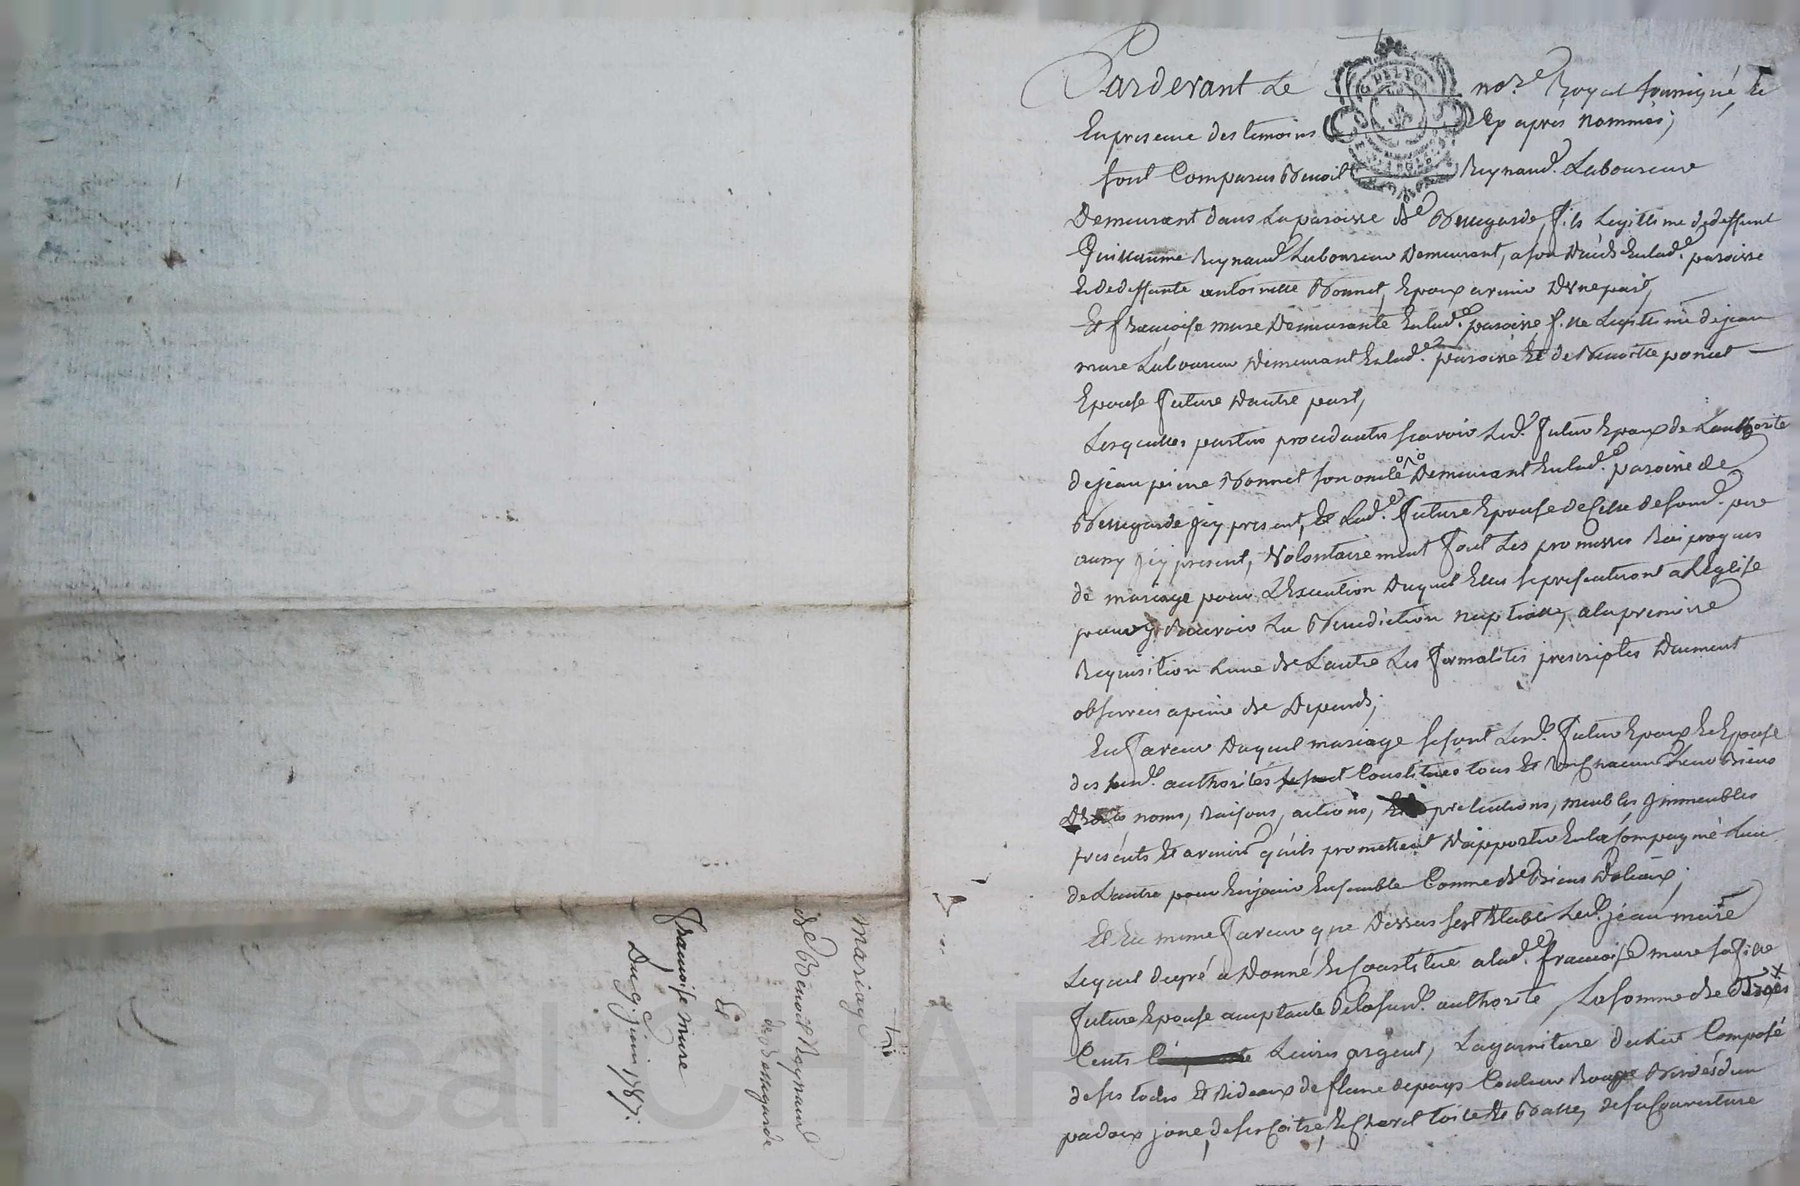 Pardevant Le no.re Royal soussigné, Et
En presence des temoins Cy apres Nommés;
sont Comparus Benoit Reynaud. Laboureur
Demeurant dans La paroisse de Bellegarde, fils Legitime de deffunt
Guillaume Reynaud Laboureur Demeurant, a son deceds Enlad.e paroisse
Et de deffunte antoinette Bonnet, Epoux avenir D'Une part,
Et francoise mure Demeurante Enlad.e paroisse fille Legitime de jean
mure Laboureur Demeurant Enlad.e paroisse Et de Benoitte poncet
Epouse future Dautre part,
Lesquelles parties procedantes scavoir Led. futur Epoux de Lauthorité
de jean pierre Bonnet son oncle Demeurant Enlad.e paroisse de
Bellegarde jcy present, Et Lad.e future Epouse de celle de sond. pere
aussy jcy present, Volontairement font Les promesses Reciproques
de mariage pour L'Execution Duquel Elles se presenteront a L'Eglise
pour y Recevoir La Benediction nuptialle, a la premiere
Requisition Lune de Lautre Les formalités prescriptes Duement
observées a peine de Depends;
En faveur Duquel mariage se sont Lesd. futur Epoux Et Epouse
des susd. authorités Constitués tous Et Un chacun Leurs Biens
Droits noms, Raisons, actions, pretentions, meubles jmmeubles
presents Et avenir qu'ils promettent D'apporter En la Compagnie Lun
de Lautre pour En jouir Ensemble Comme de Biens Dotaux;
Et En meme faveur que Dessus sest Etabli Led. jean mure
Lequel de gré a Donné Et Constitué a lad.e francoise mure sa fille
future Epouse acceptante de la susd. authorité, La somme de Trois
Cents Livres argent, La garniture de Lict Composé
de ses tours Et Rideaux de flaine de pays Couleur Rouge Bordés d'un
padoux jaune, de son Coitre, Et Chevet toile de Balle, de sa Couverture
mariage
de Benoit Reynaud
de Bellegarde
Et
francoise mure
Du 9. juin 1787.
Pascal CHAR